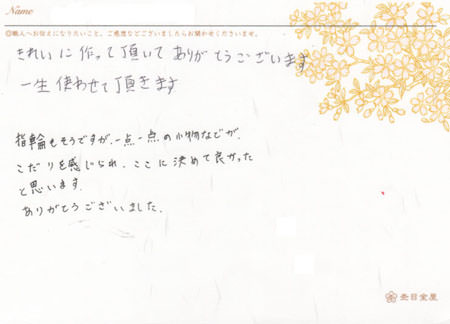 Name
◎職人へお伝えになりたいこと、ご感想などございましたらお聞かせくださいませ。
きれいに作って頂いてありがとうございます
一生使わせて頂きます
指輪もそうですが、一点一点の小物などが、
こだりを感じられ、ここに決めて良かった
と思います。
ありがとうございました。
杢目金屋